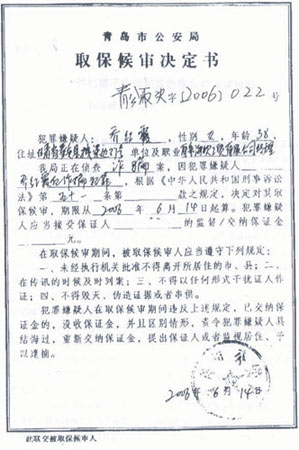 青岛市公安局
取保候审决定书
字[2006]022号
犯罪嫌疑人: 性别 女、年龄 38、
住址 单位及职业
我局正在侦查 诈骗 案,因犯罪嫌疑人
,根据《中华人民共和国刑事诉讼
法》第五十一条第 款之规定,决定对其取
保候审,期限从2006年6月14日起算。犯罪嫌疑人
应当接受保证人 的监督/交纳保证金
元。
在取保候审期间,被取保候审人应当遵守下列规定:
一、未经执行机关批准不得离开所居住的市、县;二、
在传讯的时候及时到案;三、不得以任何形式干扰证人作
证;四、不得毁灭、伪造证据或者串供。
犯罪嫌疑人在取保候审期间违反上述规定,已交纳保
证金的,没收保证金,并且区别情形,责令犯罪嫌疑人具
结悔过,重新交纳保证金,提出保证人或者监视居住、予
以逮捕。
2006年6月14日
此联交被取保候审人